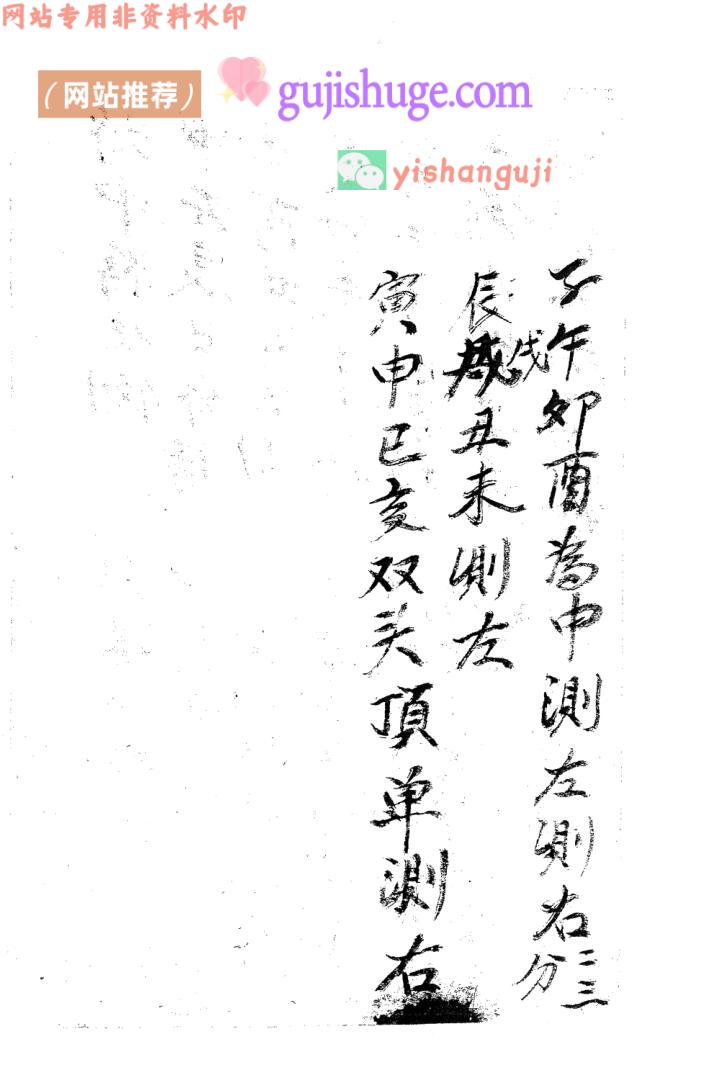 网站专用非资料水印
（网站推荐）
gujishuge.com
yishanguji
子午卯酉為中測左測右二三分
辰戌丑未測左
寅申巳亥双头頂单測右